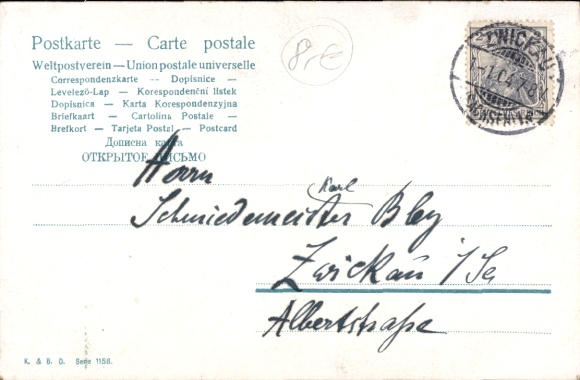 Postkarte — Carte postale
Weltpostverein — Union postale universelle
Correspondenzkarte — Dopisnice —
Levelező-Lap — Korespondenční lístek
Dopisnica — Karta Korespondenzyjna
Briefkaart — Cartolina Postale —
Brefkort — Tarjeta Postal — Postcard
Дописна карта
ОТКРЫТОЕ ПИСЬМО
8,-€
ZWICKAU
Herrn
Karl
Schmiedemeister Bley
Zwickau i/Sa
Albertstraße
K. & B. D. Serie 1158.